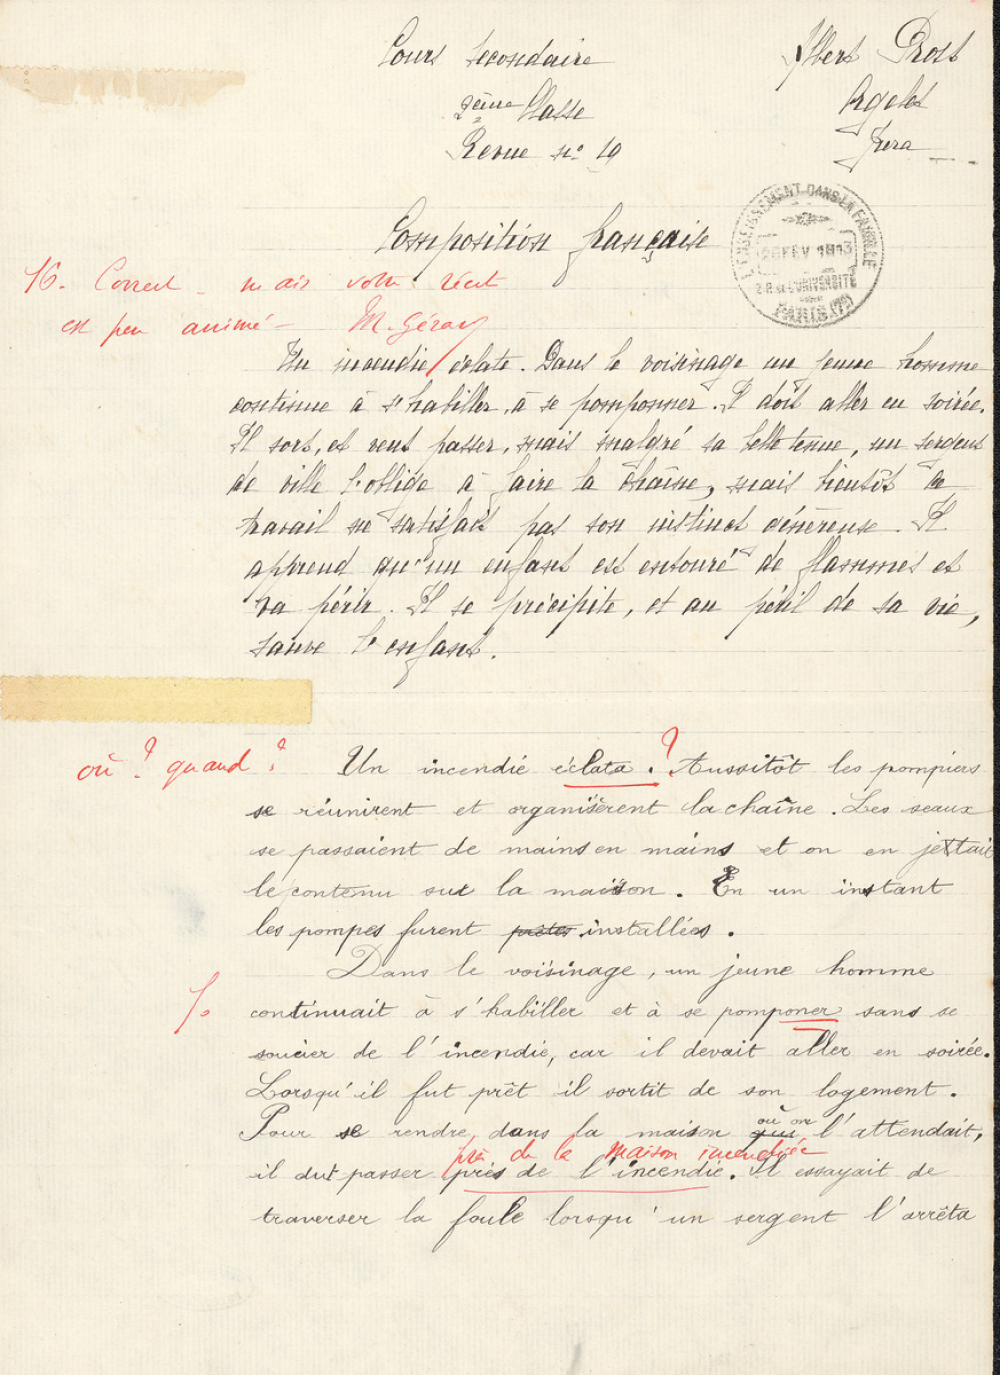 Cours secondaire
Albert Prost
2ème Classe
Argelès
Revue nº 19
Jura
Composition française
L'ENSEIGNEMENT DANS LA FAMILLE
FEV 1913
2 R. de L'UNIVERSITÉ
PARIS (7e)
16. Correct - mais votre récit
est peu animé - M. Géray
Un incendie éclate. Dans le voisinage un jeune homme
continue à s'habiller, à se pomponner. Il doit aller en soirée.
Il sort, et veut passer, mais malgré sa belle tenue, un sergent
de ville l'oblige à faire la chaîne, mais bientôt ce
travail ne satisfait pas son instinct généreuse. Il
apprend qu'un enfant est entouré de flammes et
va périr. Il se précipite, et au péril de sa vie,
sauve l'enfant.
où ? quand ?
Un incendie éclata. ? Aussitôt les pompiers
se réunirent et organisèrent la chaîne. Les seaux
se passaient de mains en mains et on en jettait
le contenu sur la maison. En un instant
les pompes furent prêtes installées.
Dans le voisinage, un jeune homme
continuait à s'habiller et à se pomponer sans se
soucier de l'incendie, car il devait aller en soirée.
Lorsqu'il fut prêt il sortit de son logement.
Pour se rendre, dans la maison qui où on l'attendait,
près de la maison incendiée
il dut passer près de l'incendie. Il essayait de
traverser la foule lorsqu'un sergent l'arrêta